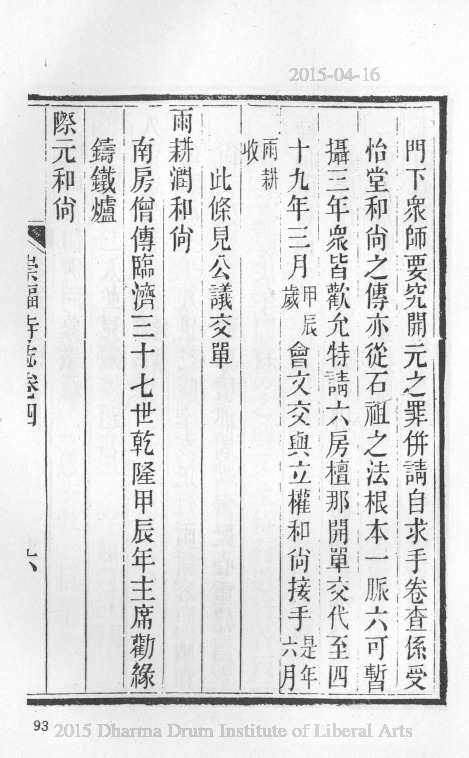 2015-04-16
門下衆師要究開元之罪併請自求手卷查係受
怡堂和尚之傳亦從石祖之法根本一脈六可暫
攝三年衆皆歡允特請六房檀那開單交代至四
十九年三月甲辰歲會文交與立權和尚接手是年六月
雨耕收
此條見公議交單
雨耕潤和尚
南房僧傳臨濟三十七世乾隆甲辰年主席勸緣
鑄鐵爐
際元和尚
崇福寺誌卷四
93
2015 Dharma Drum Institute of Liberal Arts